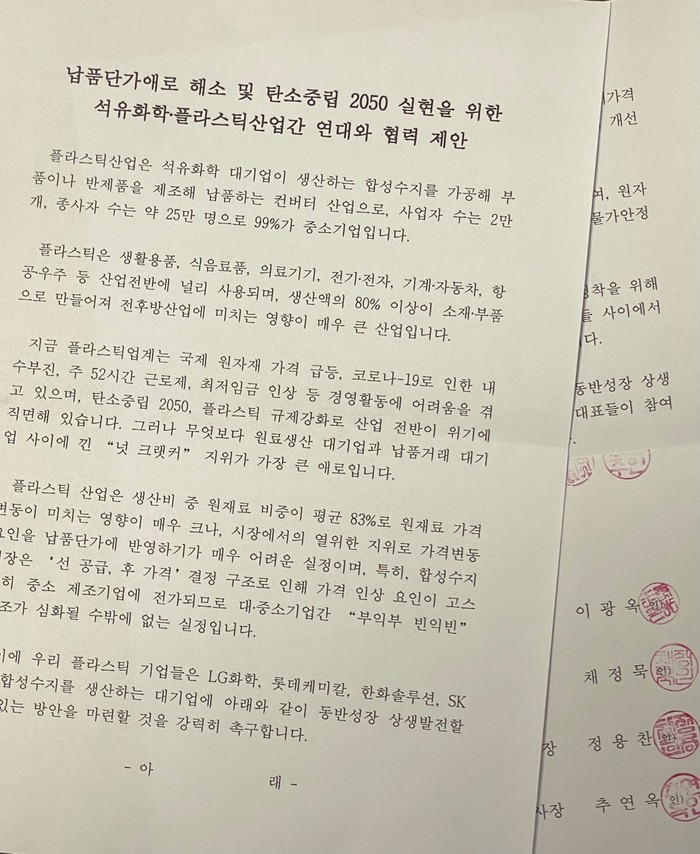 납품단가애로 해소 및 탄소중립 2050 실현을 위한
석유화학·플라스틱산업간 연대와 협력 제안
플라스틱산업은 석유화학 대기업이 생산하는 합성수지를 가공해 부
품이나 반제품을 제조해 납품하는 컨버터 산업으로, 사업자 수는 2만
개, 종사자 수는 약 25만 명으로 99%가 중소기업입니다.
플라스틱은 생활용품, 식음료품, 의료기기, 전기·전자, 기계·자동차, 항
공·우주 등 산업전반에 널리 사용되며, 생산액의 80% 이상이 소재·부품
으로 만들어져 전후방산업에 미치는 영향이 매우 큰 산업입니다.
지금 플라스틱업계는 국제 원자재 가격 급등, 코로나-19로 인한 내
수부진, 주 52시간 근로제, 최저임금 인상 등 경영활동에 어려움을 겪
고 있으며, 탄소중립 2050, 플라스틱 규제강화로 산업 전반이 위기에
직면해 있습니다. 그러나 무엇보다 원료생산 대기업과 납품거래 대기
업 사이에 낀 “넛 크랫커” 지위가 가장 큰 애로입니다.
플라스틱 산업은 생산비 중 원재료 비중이 평균 83%로 원재료 가격
변동이 미치는 영향이 매우 크나, 시장에서의 열위한 지위로 가격변동
요인을 납품단가에 반영하기가 매우 어려운 실정이며, 특히, 합성수지
시장은 ‘선 공급, 후 가격’ 결정 구조로 인해 가격 인상 요인이 고스
히 중소 제조기업에 전가되므로 대·중소기업간 “부익부 빈익빈”
조가 심화될 수밖에 없는 실정입니다.
이에 우리 플라스틱 기업들은 LG화학, 롯데케미칼, 한화솔루션, SK
합성수지를 생산하는 대기업에 아래와 같이 동반성장 상생발전할
있는 방안을 마련할 것을 강력히 촉구합니다.
- 아 래 -
가격
개선
여, 원자
물가안정
정착을 위해
들 사이에서
다.
동반성장 상생
대표들이 참여
이 광 옥 (인)
채 정 묵 (인)
장 정 용 찬 (인)
사장 추 연 옥 (인)